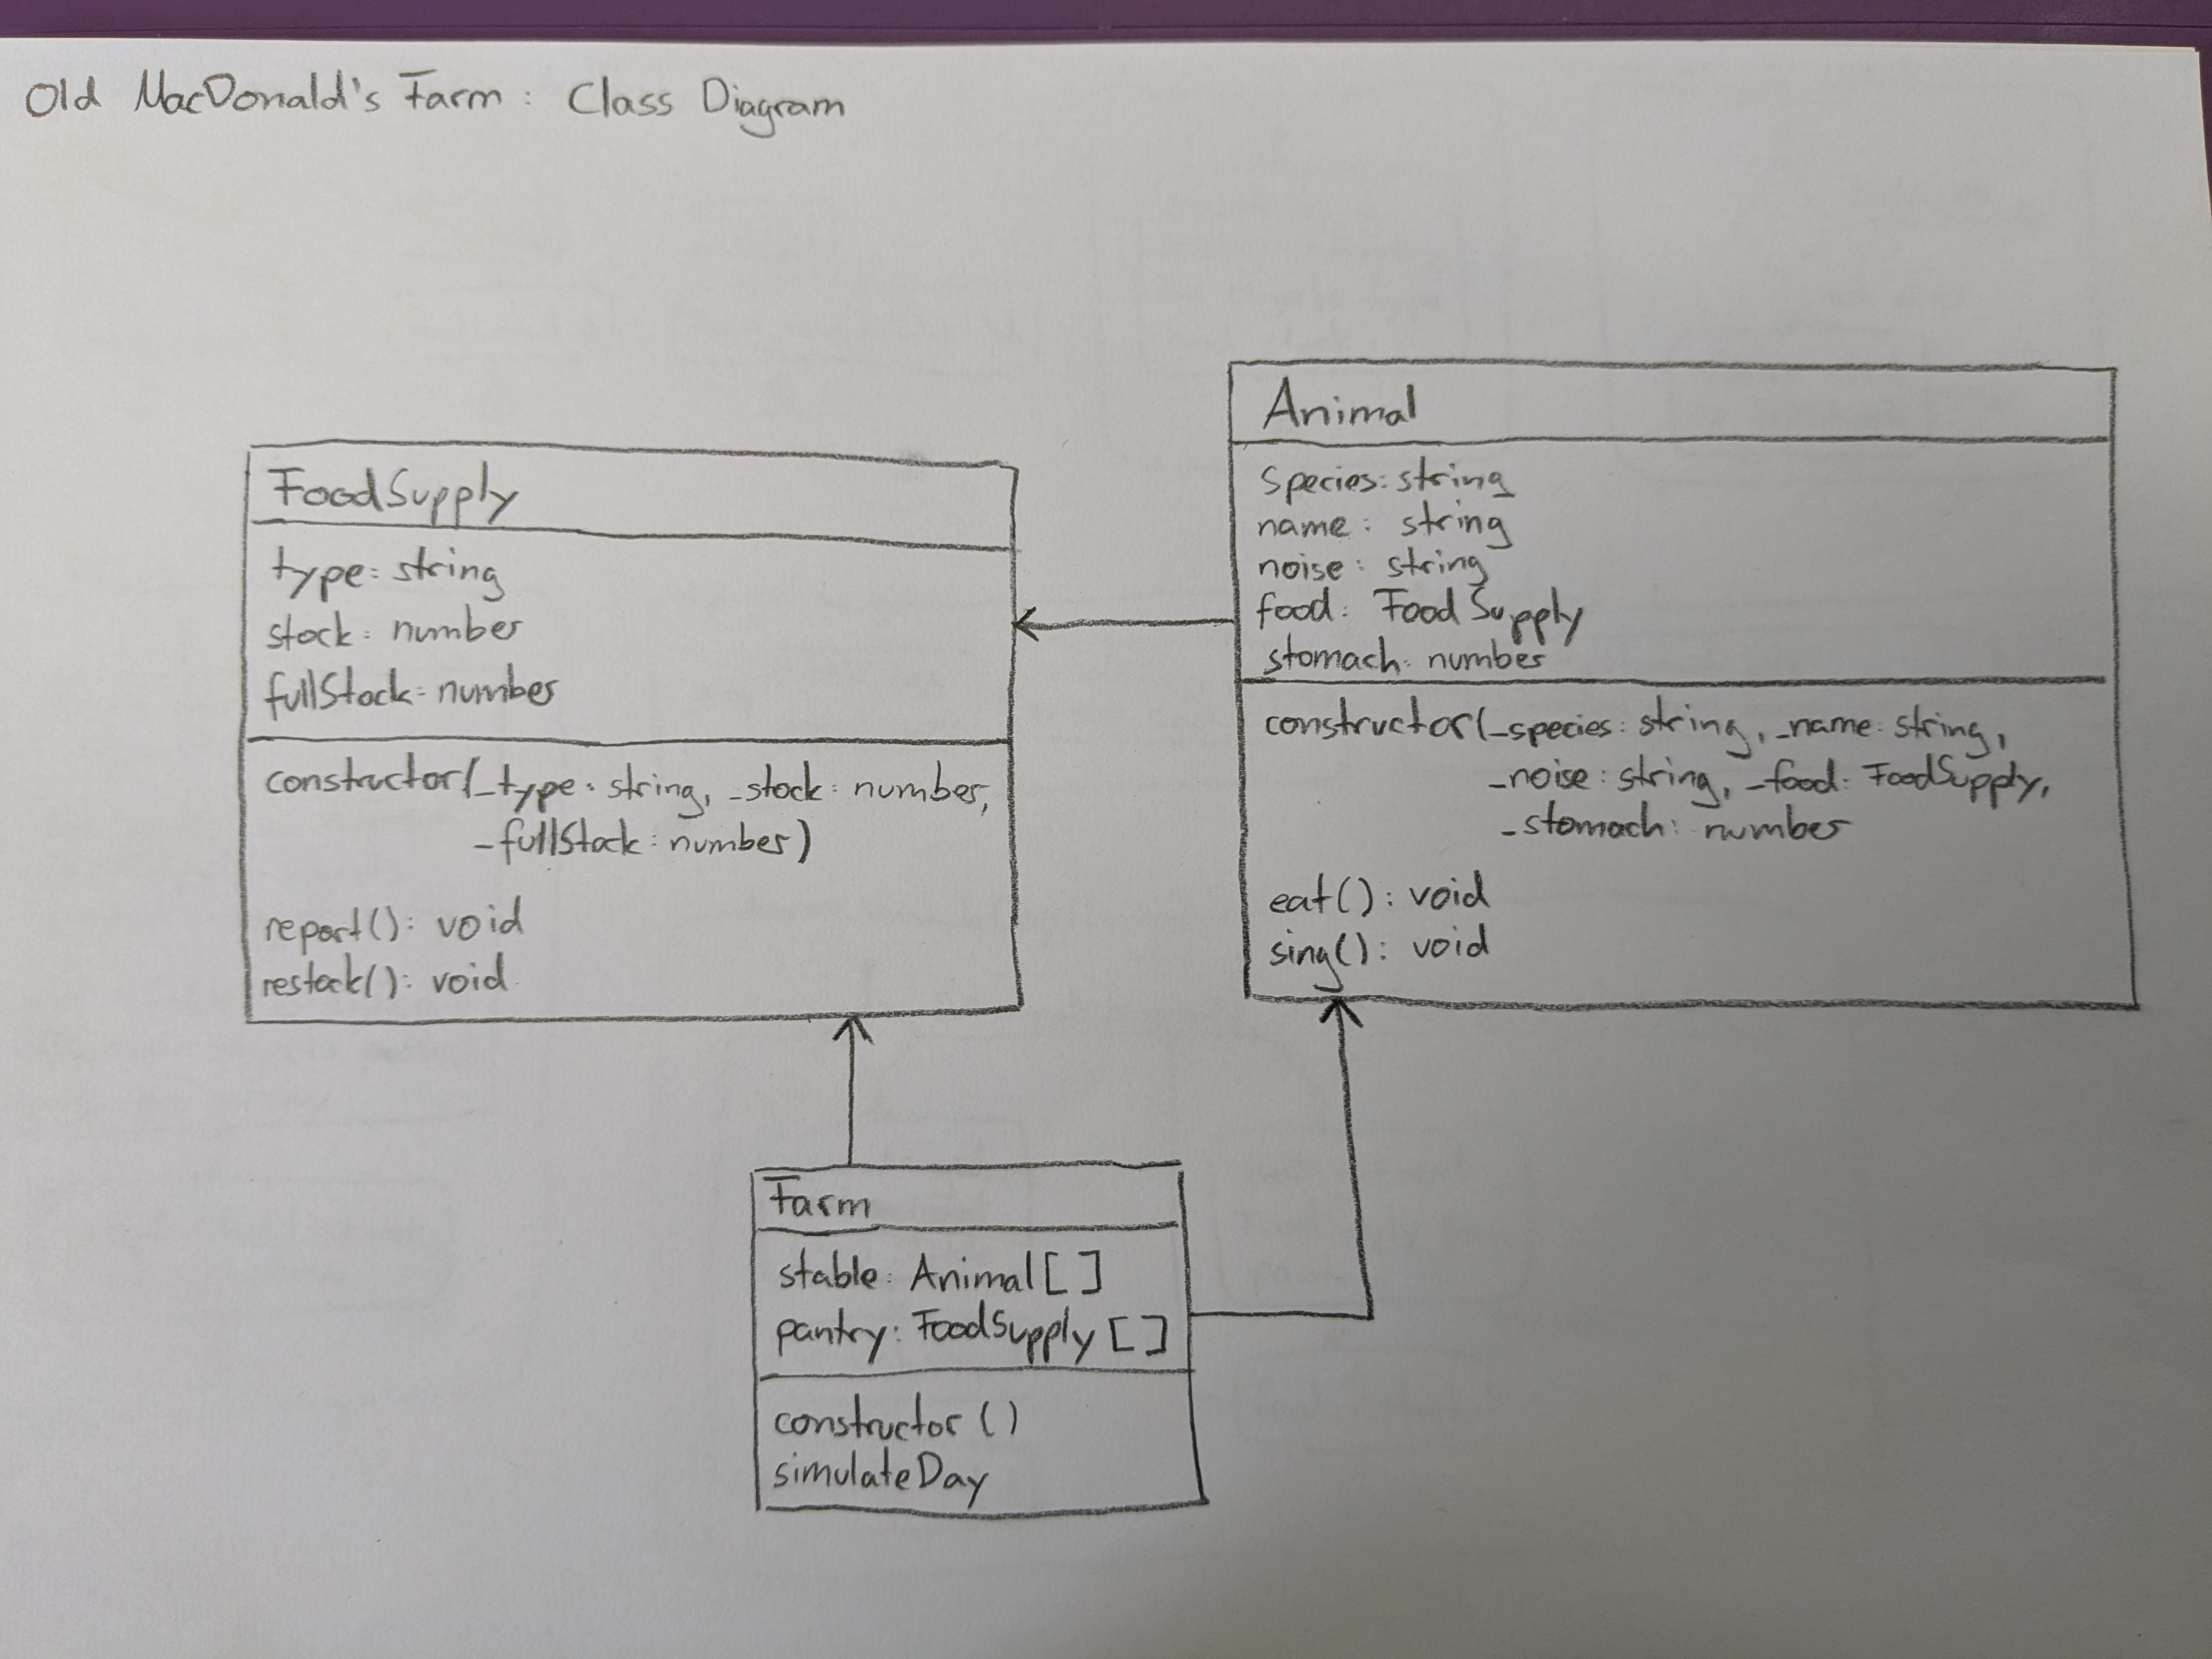 Old MacDonald's Farm: Class Diagram
FoodSupply
type: string
stock: number
fullStock: number
constructor(_type: string, _stock: number,
_fullStock: number)
report(): void
restock(): void
Animal
species: string
name: string
noise: string
food: FoodSupply
stomach: number
constructor(_species: string, _name: string,
_noise: string, _food: FoodSupply,
_stomach: number
eat(): void
sing(): void
Farm
stable: Animal[]
pantry: FoodSupply[]
constructor()
simulateDay